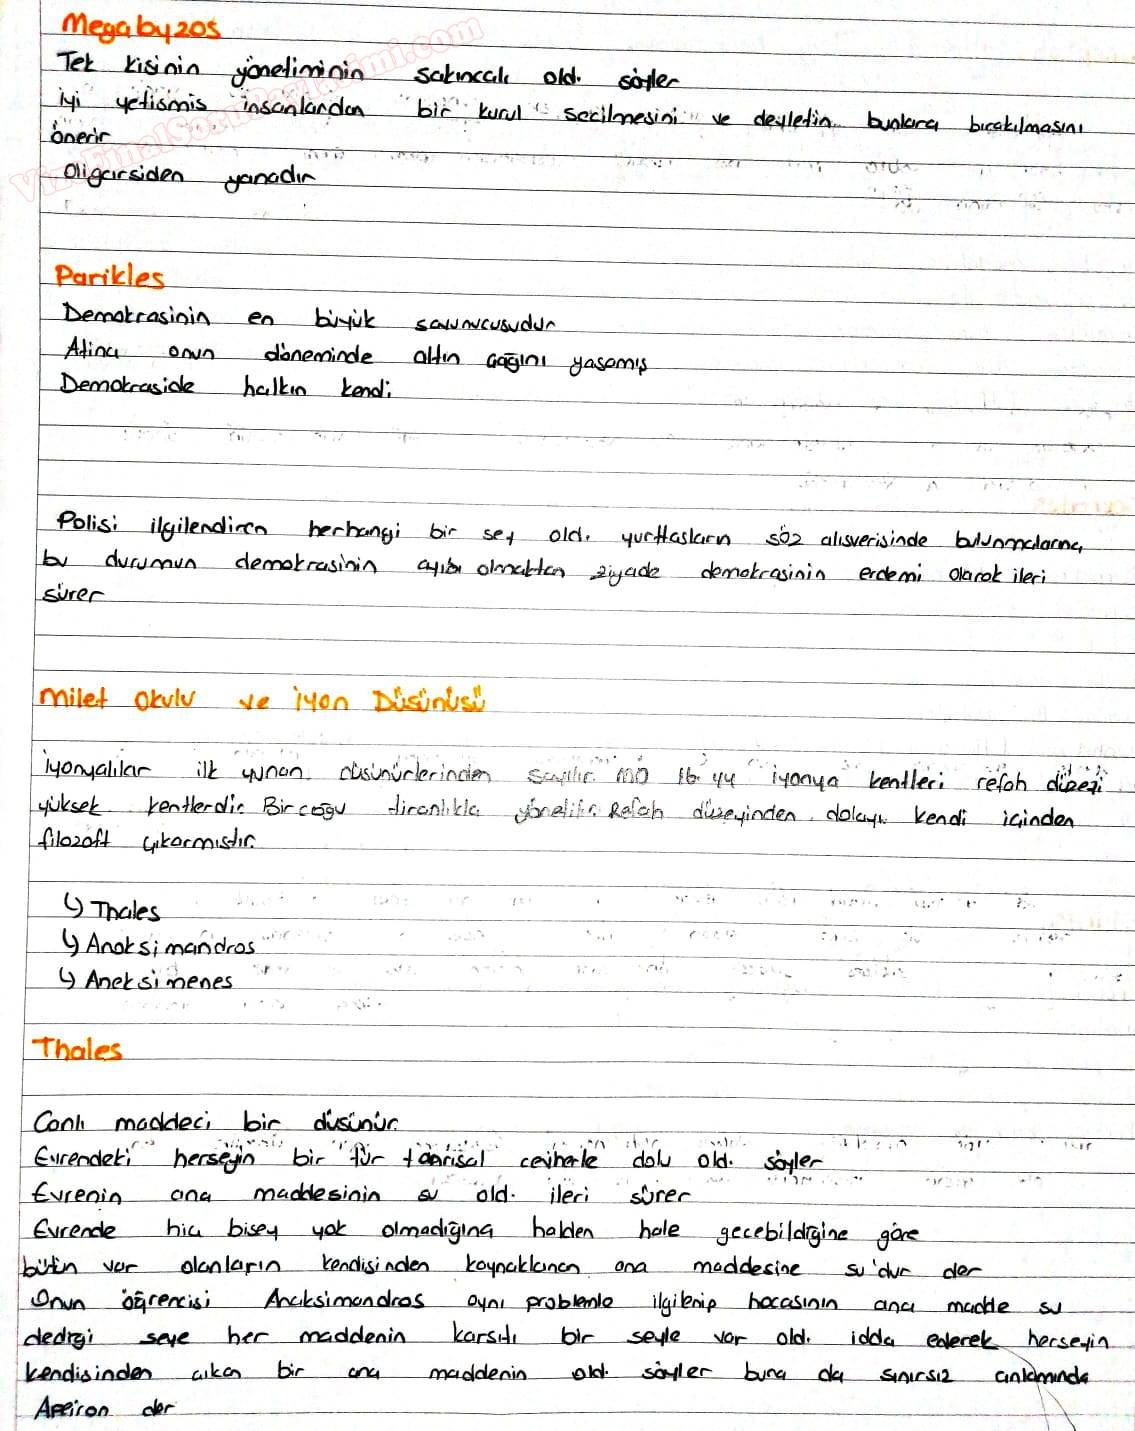 Megabyzos
Tek kisinin yönetiminin sakıncalı old. söyler
iyi yetismis insanlardan bir kurul secilmesini ve devletin bunlara bırakılmasını
önerir
Oligarsiden yanadır
Parikles
Demokrasinin en büyük savunucusudur
Atina onun döneminde altın çağını yasamış
Demokraside halkın kendi
Polisi ilgilendiren herhangi bir sey old. yurttasların söz alısverisinde bulunmalarına,
bu durumun demokrasinin ayıbı olmaktan ziyade demokrasinin erdemi olarak ileri
sürer
Milet Okulu ve İyon Düsünüsü
iyonyalılar ilk yunan düsünürlerinden sayılır. MÖ 16. yy iyonya kentleri refah düzeyi
yüksek kentlerdir. Bircogu tiranlıkla yönetilir. Refah düzeyinden dolayı kendi içinden
filozoft çıkarmıstır.
↳ Thales
↳ Anaksimandros
↳ Aneksimenes
Thales
Canlı maddeci bir düsünür.
Evrendeki herseyin bir tür tanrısal cevherle dolu old. söyler
Evrenin ana maddesinin su old. ileri sürer
Evrende hiç bisey yok olmadığına halden hale gecebildiğine göre
bütün var olanların kendisinden kaynaklanan ana maddesine su'dur der
Onun öğrencisi Anaksimandros aynı problemle ilgilenip hocasının ana madde su
dediği seye her maddenin karsıtı bir seyle var old. idda ederek herseyin
kendisinden cıkan bir ana maddenin old. söyler buna da sınırsız anlamında
Apeiron der
VizeFinalSoruPaylasimi.com